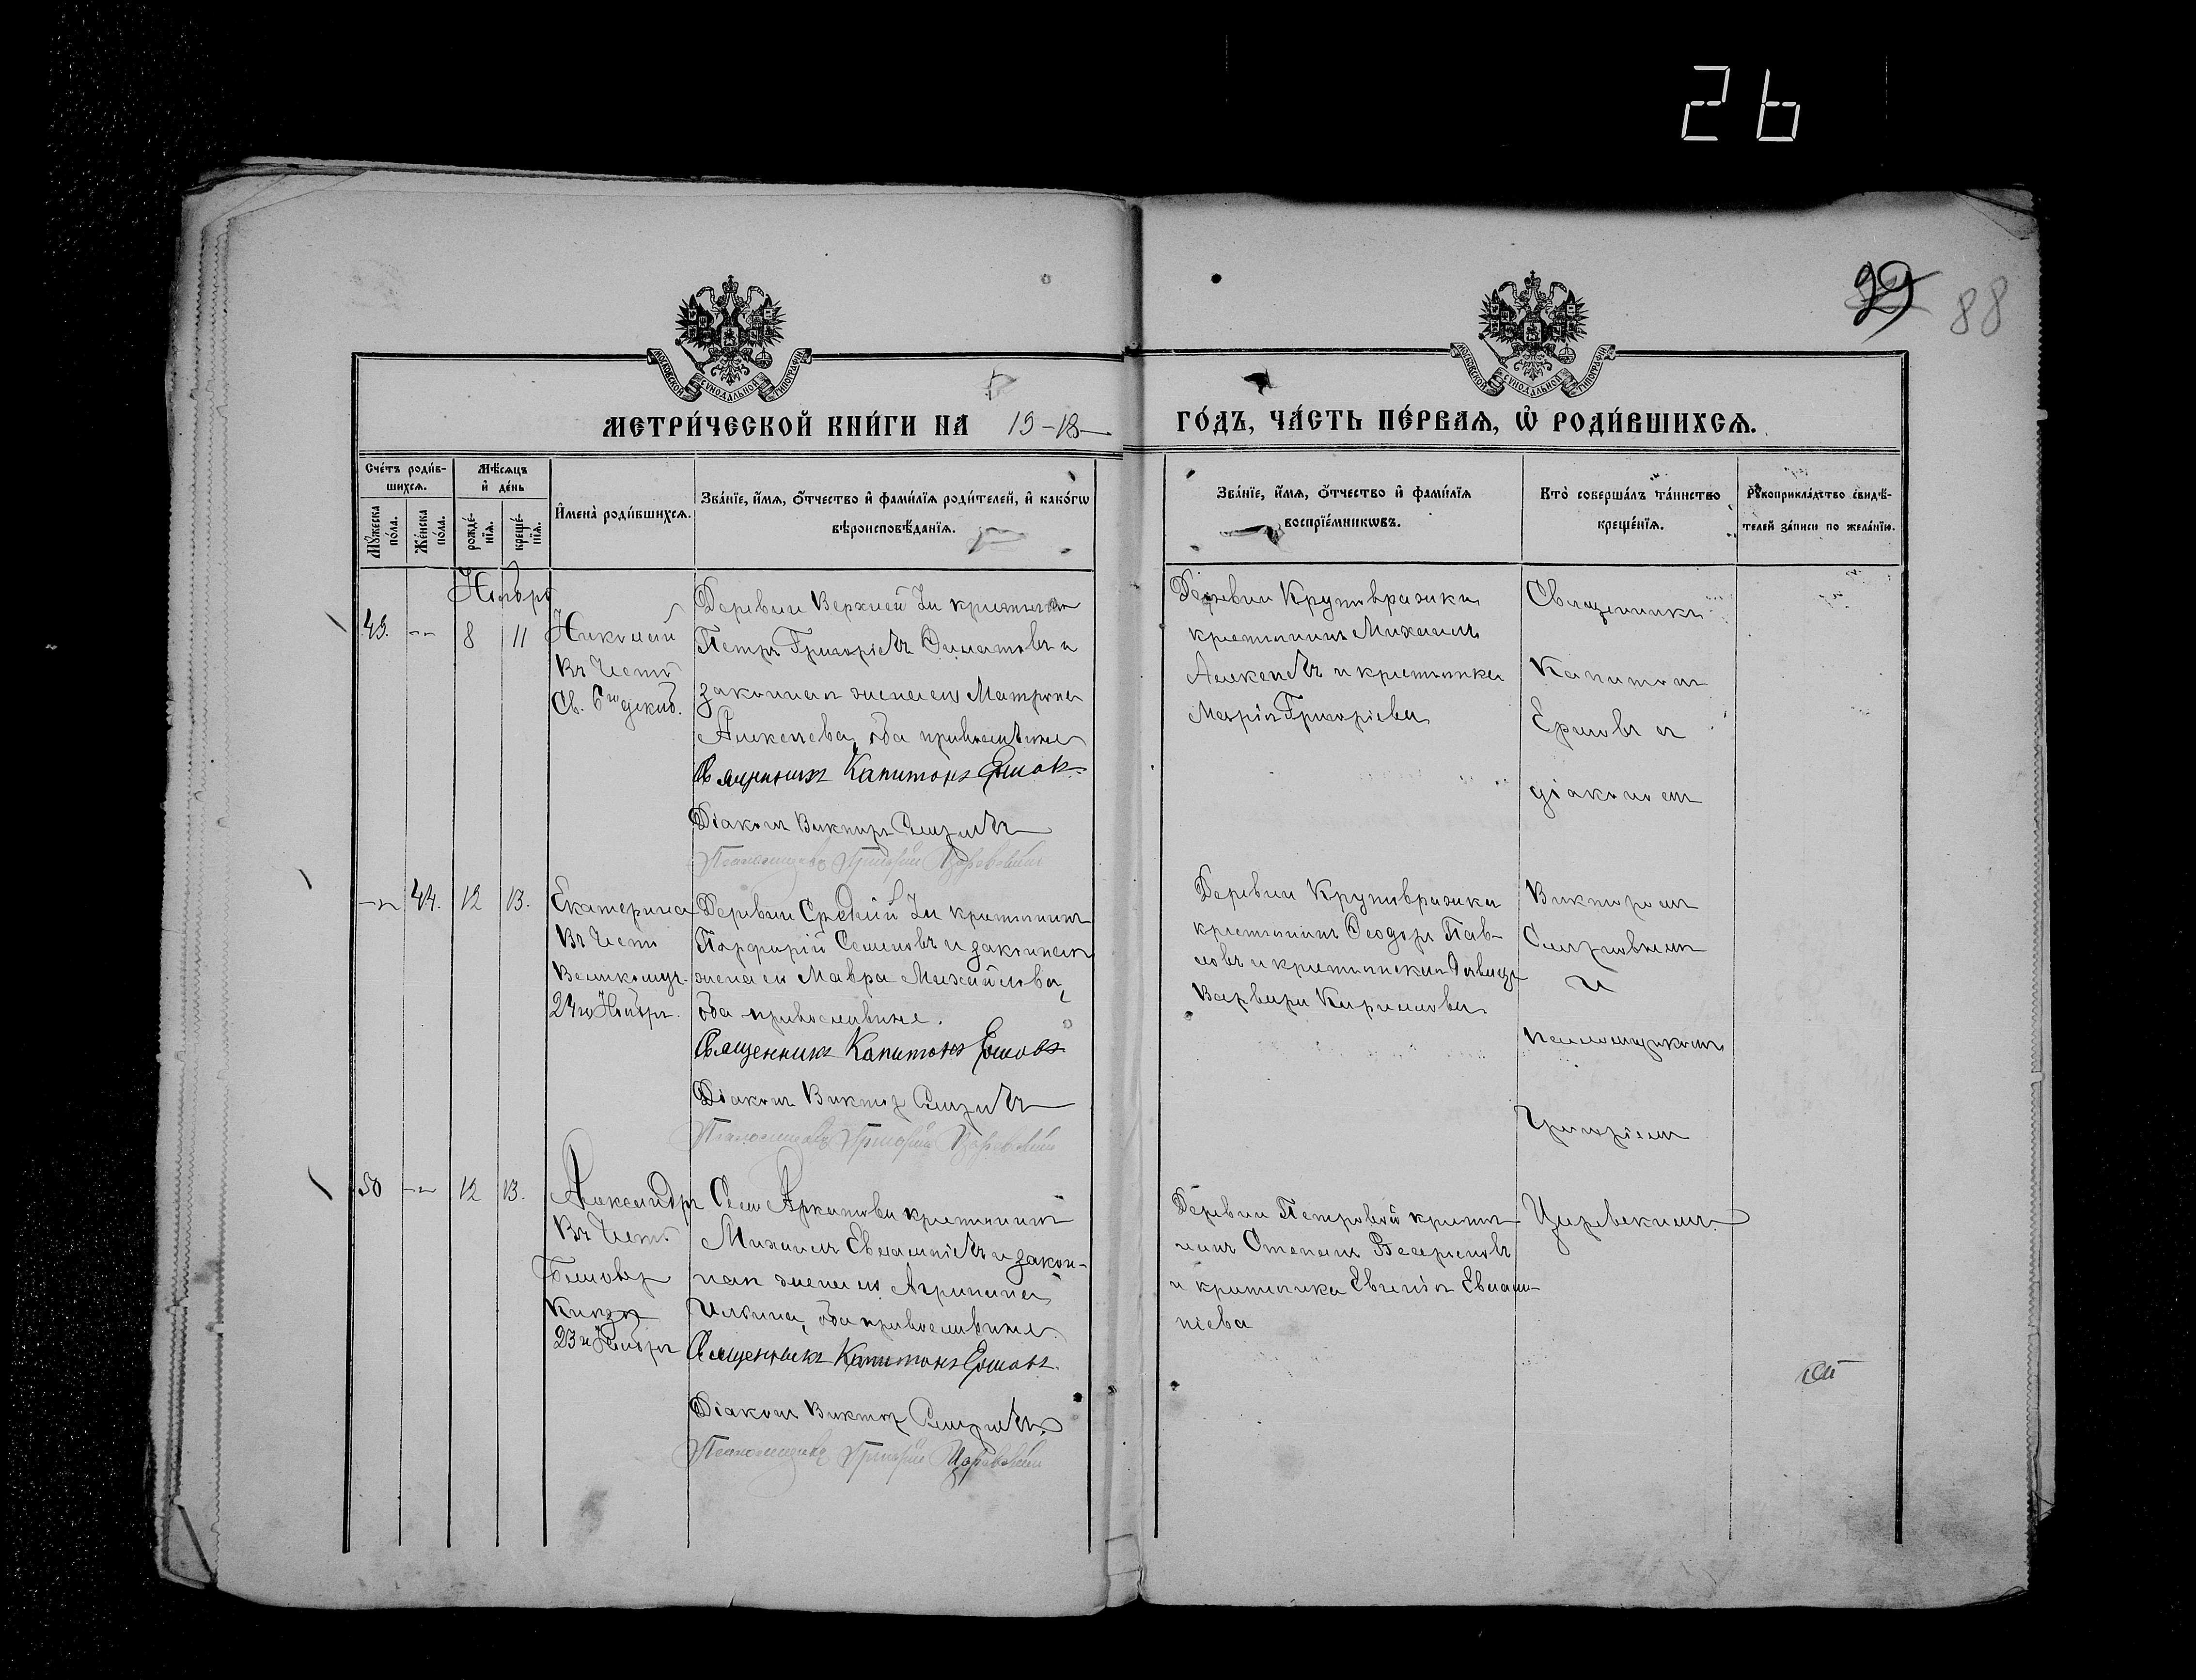 26
99 88
МЕТРИ́ЧЕСКОЙ КНИ́ГИ НА 19-18- ГО́ДЪ, ЧА́СТЬ ПЕ́РВАЯ, Ѡ҆ РОДИ́ВШИХСѦ.
МОСКОВСКОЙ СѴНОДАЛЬНОЙ ТИПОГРАФІИ
МОСКОВСКОЙ СѴНОДАЛЬНОЙ ТИПОГРАФІИ
Сче́тъ роди́в-
шихсѧ.
Мꙋ́жеска по́ла.
Же́нска по́ла.
Мѣ́сяцъ
и҆ де́нь
рожде́-
нїѧ.
креще́-
нїѧ.
И҆мена̀ роди́вшихсѧ.
Зва́нїе, и҆́мѧ, ѻ҆́тчество и҆ фами́лїѧ роди́телей, и҆ како́гѡ
вѣроисповѣ́данїѧ.
Зва́нїе, и҆́мѧ, ѻ҆́тчество и҆ фами́лїѧ
воспрїе́мникѡвъ.
Кто̀ соверша́лъ та́инство
креще́нїѧ.
Рꙋкоприкла́дство свидѣ́-
телей за́писи по жела́нїю.
Ноябрь
49. -"- 8 11
Николай
Въ честь
Св.
Деревни Верхней крестьянинъ
Петръ Григоріевъ и
законная жена его Матрона
Алексеева, оба православные
Священникъ Капитонъ Ершовъ.
Діаконъ Викторъ Смирновъ
Псаломщикъ Григорій Царевскій
Деревни Крутовражки
крестьянинъ Михаилъ
Алексеевъ и крестьянка
Марія Григоріева
Священникъ
Капитонъ
Ершовъ съ
діакономъ
-"- 44. 12 13.
Екатерина
Въ честь
Великомуч.
24го Ноября.
Деревни Средней крестьянинъ
Порфирій Семеновъ и законная
жена его Мавра Михайлова,
оба православные.
Священникъ Капитонъ Ершовъ
Діаконъ Викторъ Смирновъ
Псаломщикъ Григорій Царевскій
Деревни Крутовражки
крестьянинъ Ѳеодоръ Пав-
ловъ и крестьянская девица
Варвара Кириллова
Викторомъ
Смирновымъ
и
псаломщикомъ
Григоріемъ
50 -"- 12 13.
Александръ
Въ честь
Благовер
Князя
23 Ноября
Село крестьянинъ
Михаилъ Евлампіевъ и закон-
ная жена его Агрипина
Ильина, оба православные
Священникъ Капитонъ Ершовъ.
Діаконъ Викторъ Смирновъ
Псаломщикъ Григорій Царевскій
Деревни Петровой крестья-
нинъ Степанъ
и крестьянка Евгенія Евлам-
піева
Царевскимъ